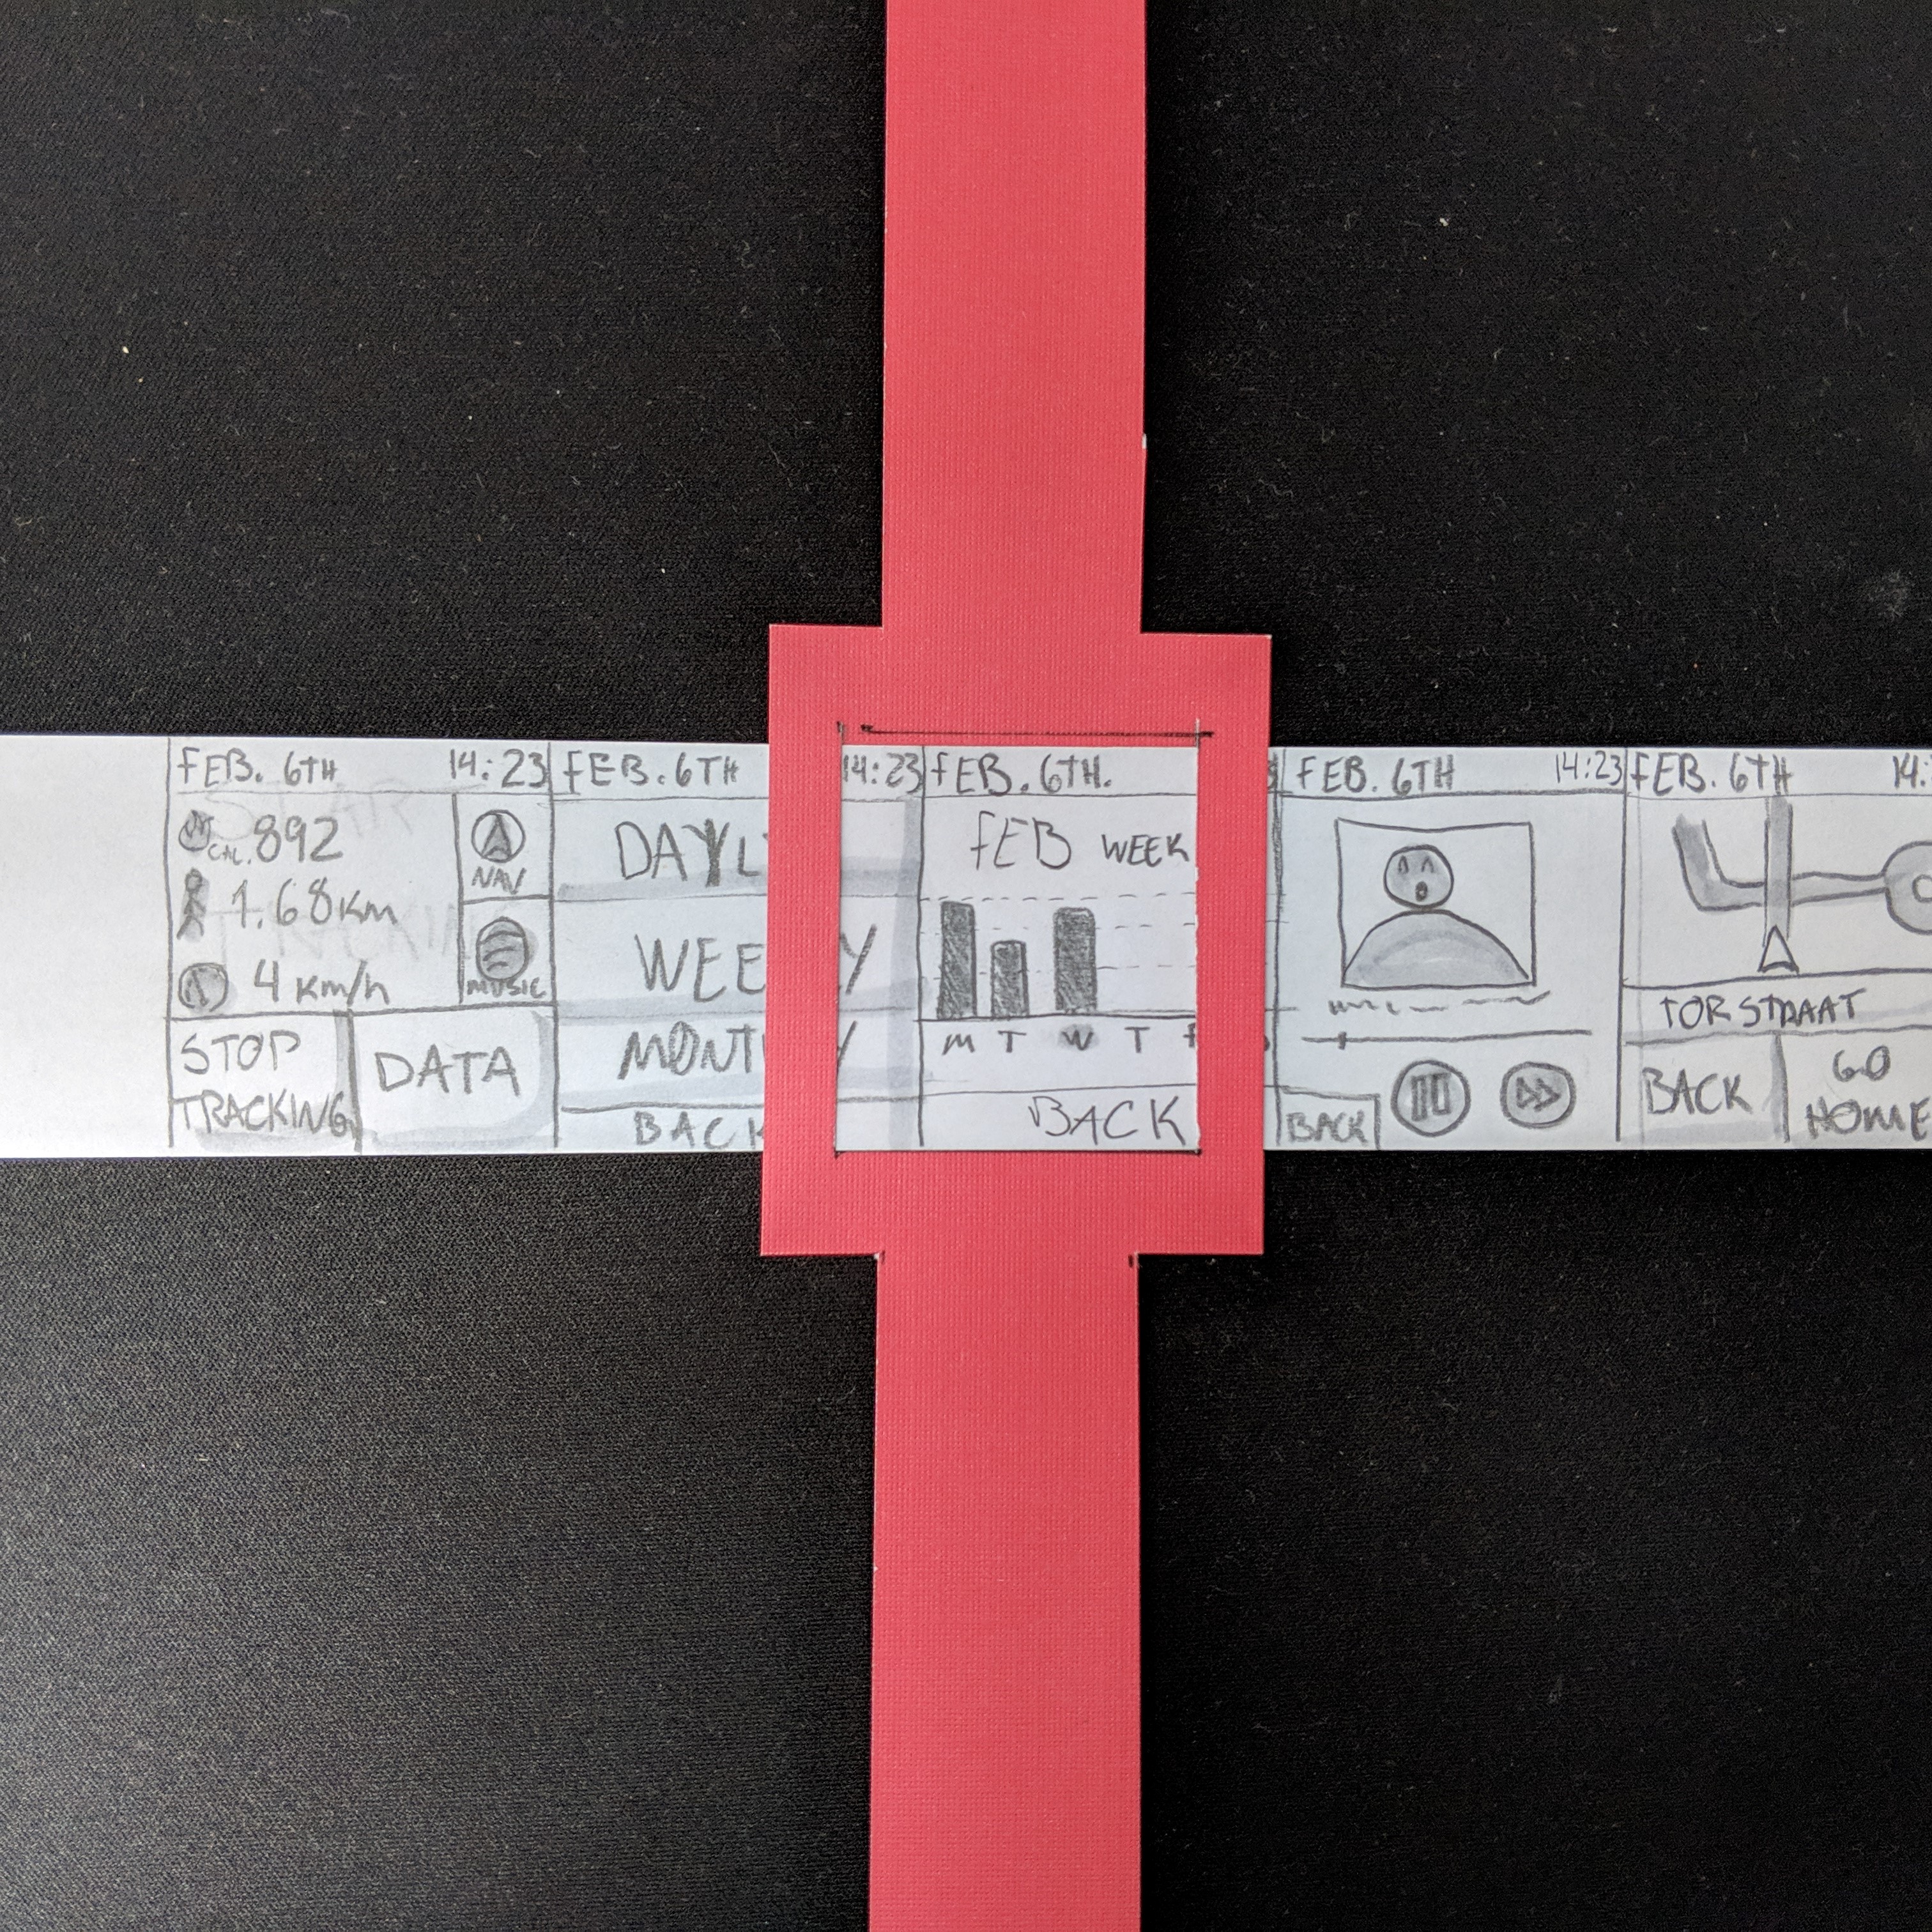 FEB. 6TH 14:23
CAL. 892
1.68 KM
4 KM/h
NAV
MUSIC
STOP
TRACKING
DATA
FEB. 6TH 14:23
DAYL
WEE Y
MONT Y
BACK
FEB. 6TH.
FEB WEEK
M T W T F
BACK
FEB. 6TH 14:23
BACK
FEB. 6TH 14:
TORSTRAAT
BACK
GO
HOME